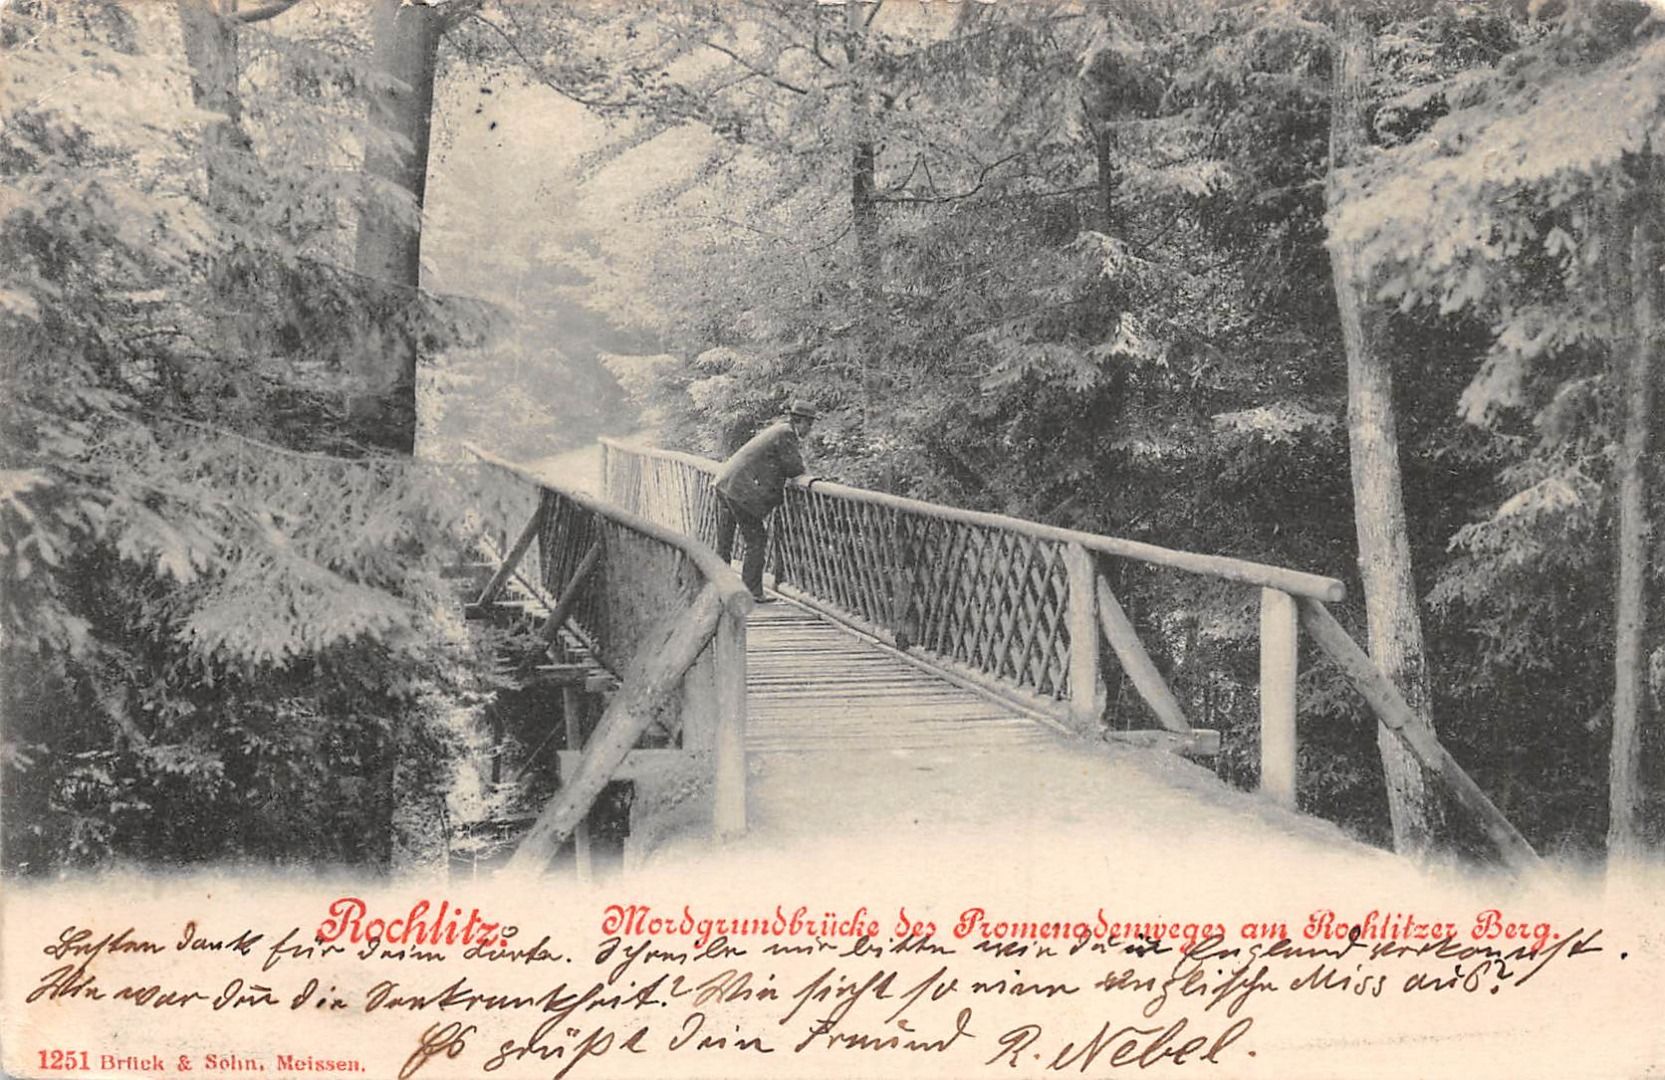 Rochlitz. Mordgrundbrücke des Promenadenweges am Rochlitzer Berg.
Besten Dank für Deine Karte. Schreibe mir bitte wie Du in England verkommst.
Wie war den̄ die Seekrankheit? Wie sieht so eine englische Miss aus?
Es grüßt Dein Freund R. Nebel.
1251 Brück & Sohn, Meissen.